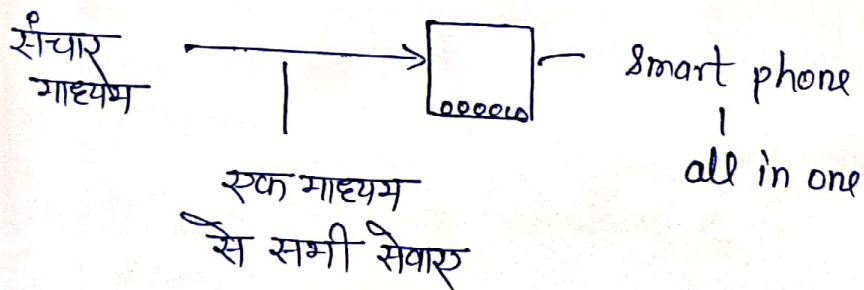 संचार
माध्यम
smart phone
all in one
एक माध्यम
से सभी सेवाए